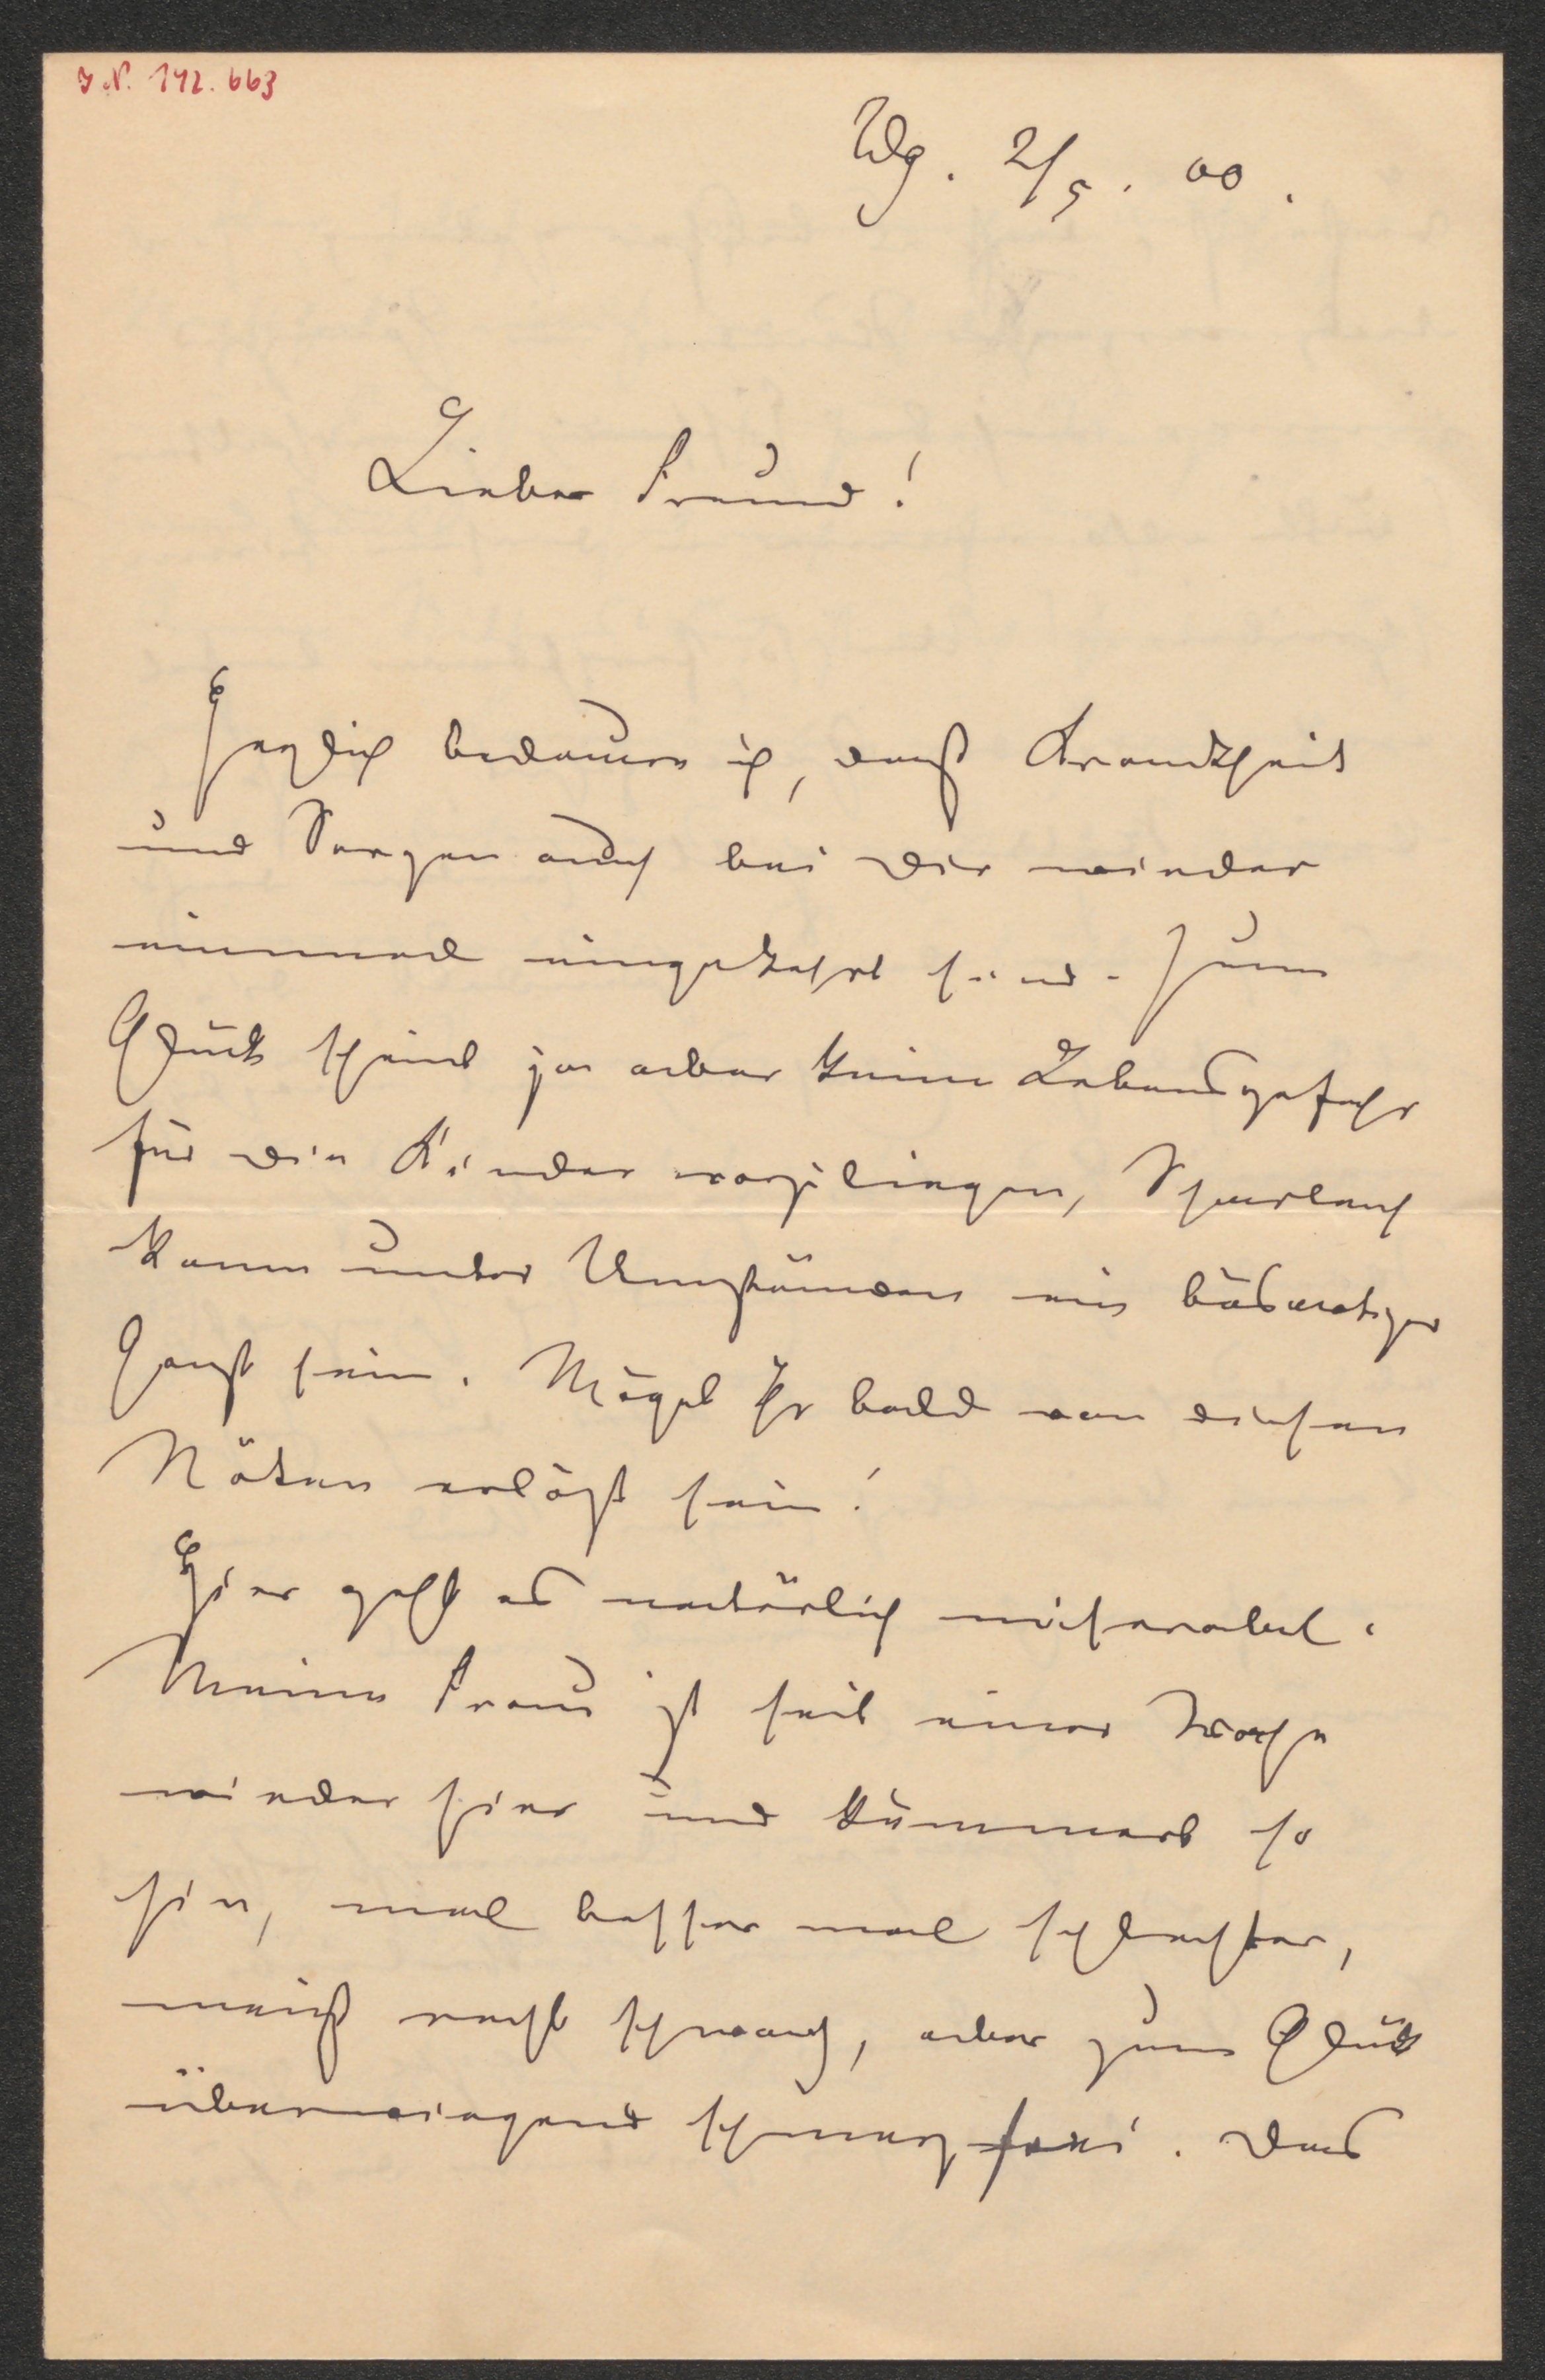 J. N. 142.663
Wg. 2/5. 00.
Lieber Freund!
Herzlich bedaure ich, daß Krankheit
und Sorgen auch bei Dir wieder
einmal eingekehrt sind. Zum
Glück scheint ja aber keine Lebensgefahr
für die Kinder vorzuliegen, Scharlach
kann unter Umständen ein bösartiger
Gast sein. Möget Ihr bald von diesen
Nöten erlöst sein!
Hier geht es natürlich miserabel.
Meine Frau ist seit einer Woche
wieder hier und kümmert so
hin, mal besser mal schlechter,
meist recht schwach, aber zum Glück
überwiegend schmerzfrei. Das